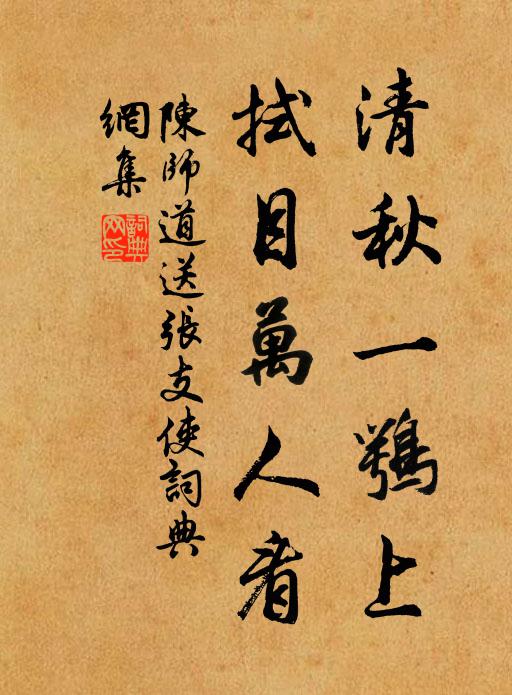 清秋一鶚上
拭目萬人看
陳師道送張支使詞典
網集
詞典
网印